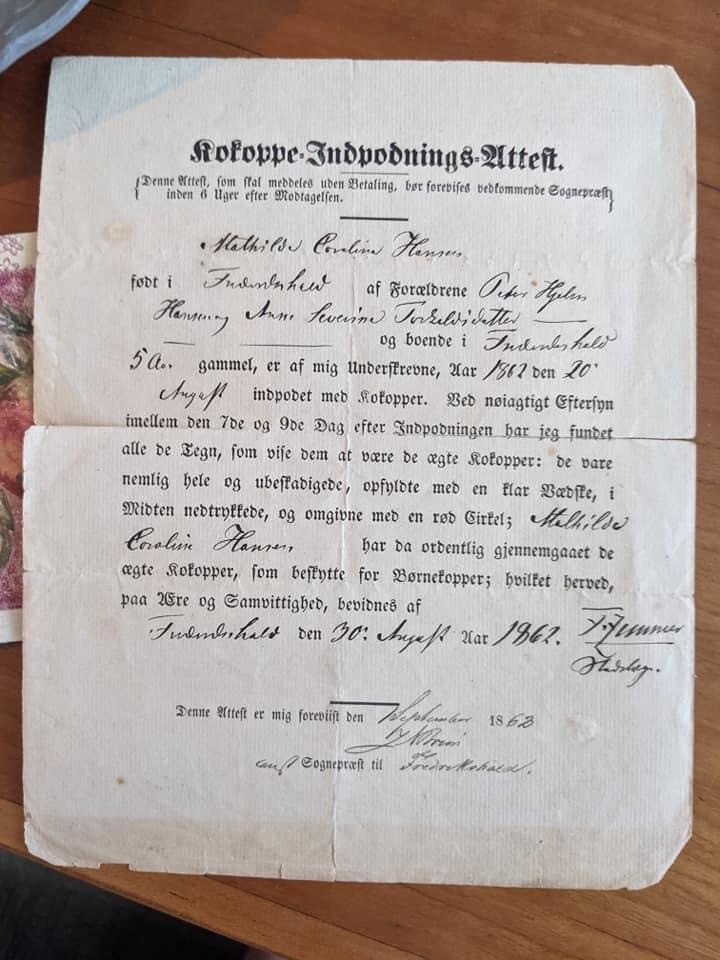 Kokoppe-Indpodnings-Attest.
(Denne Attest, som skal meddeles uden Betaling, bør forevises vedkommende Sognepræst
inden 6 Uger efter Modtagelsen.)
Mathilde Caroline Hansen
født i Frederikshald af Forældrene Peter Hjelm
Hansen og Anne Severine Torkeldsdatter
og boende i Frederikshald
5 Aar gammel, er af mig Underskrevne, Aar 1862 den 20de
August indpodet med Kokopper. Ved nøiagtigt Eftersyn
imellem den 7de og 9de Dag efter Indpodningen har jeg fundet
alle de Tegn, som vise dem at være de ægte Kokopper: de vare
nemlig hele og ubeskadigede, opfyldte med en klar Vædske, i
Midten nedtrykkede, og omgivne med en rød Cirkel; Mathilde
Caroline Hansen har da ordentlig gjennemgaaet de
ægte Kokopper, som beskytte for Børnekopper; hvilket herved,
paa Ære og Samvittighed, bevidnes af
Frederikshald den 30. August Aar 1862.
Denne Attest er mig foreviist den September 1862
Sognepræst til Fredrikshald.